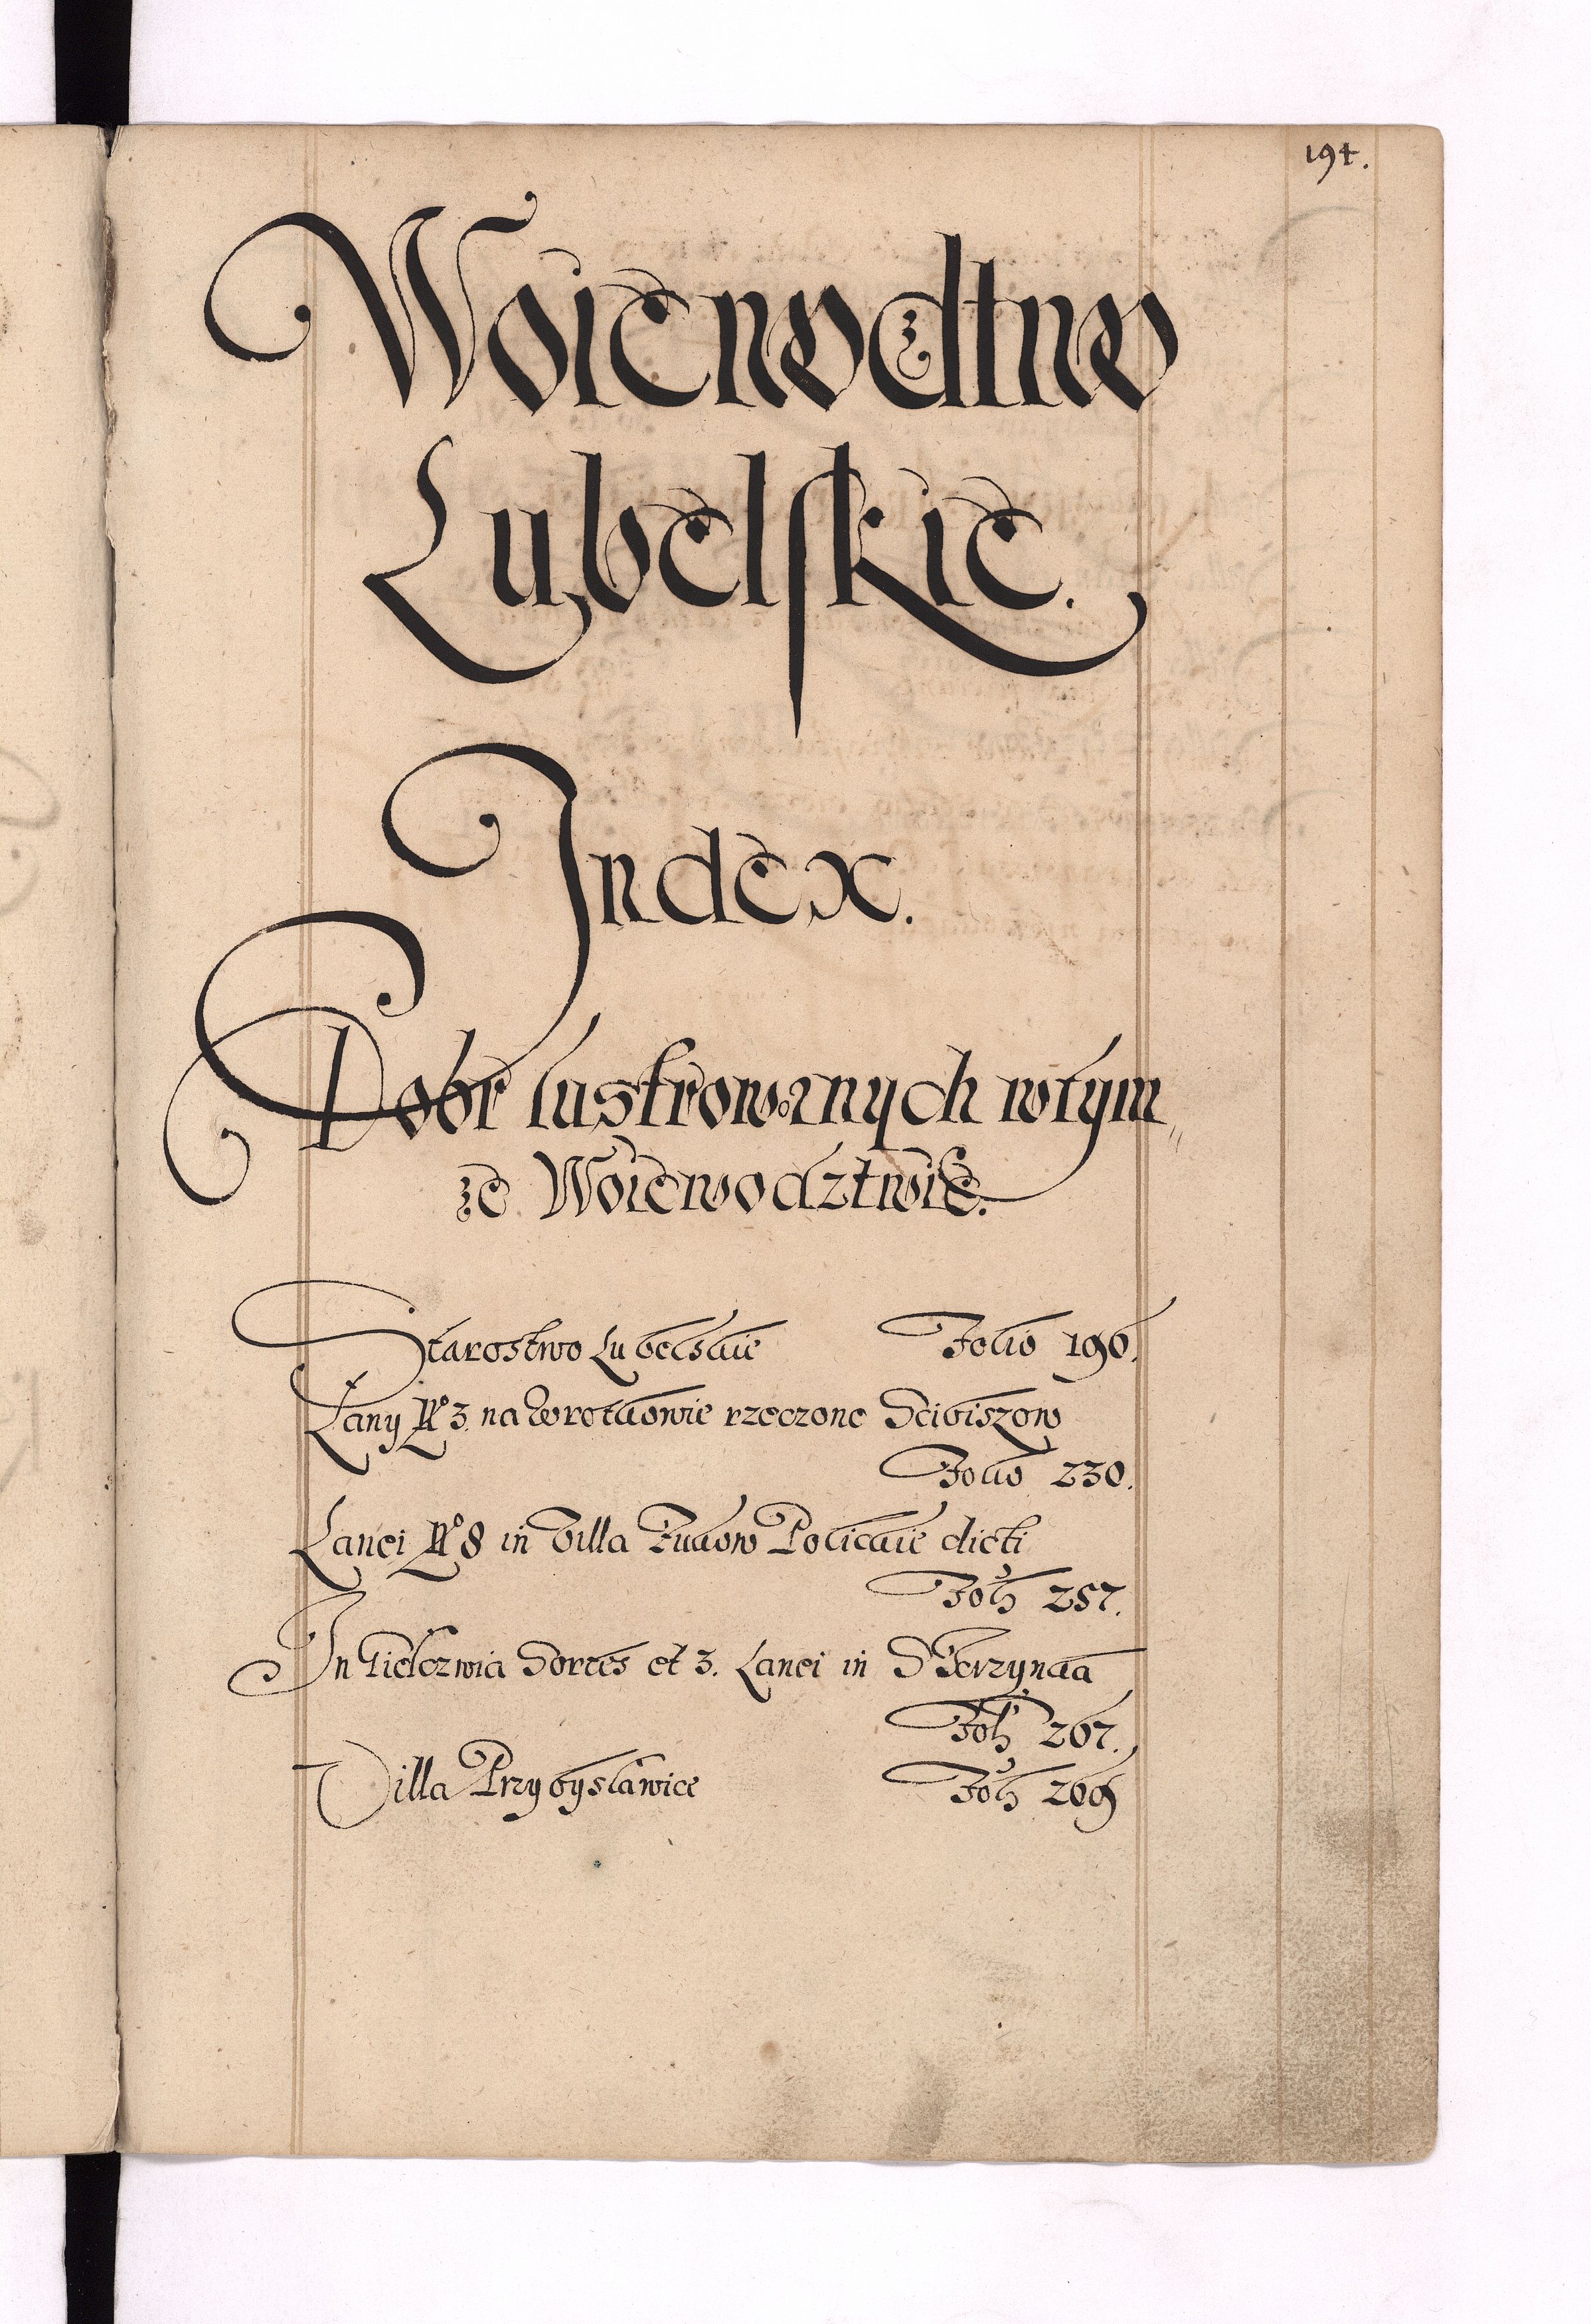 194.
Woiewodztwo
Lubelskie.
Index.
Dobr lustrowanych wtym
ze Woiewodztwie.
Starostwo Lubelskie Folio 196.
Łany No 3. na Wrotkowie rzeczone Scibiszow
Folio 230.
Lanei No 8 in Villa Polickie dicti
Folio 257.
In Sortes et 3. Lanei in
Folio 267.
Villa Przybysławice Folio 269